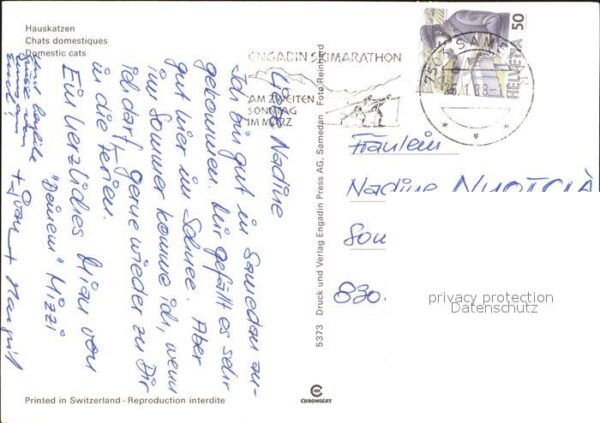 Hauskatzen
Chats domestiques
Domestic cats
Liebe Nadine
Ich bin gut in Samedan an-
gekommen. Mir gefällt es sehr
gut hier im Schnee. Aber
im Sommer komme ich, wenn
ich darf, gerne wieder zu Dir
in die Ferien.
Ein herzliches Miau von
"Deinem" Mizzi
und herzliche
Grüsse von
ENGADIN SKIMARATHON
AM ZWEITEN
SONNTAG
IM MÄRZ
HELVETIA 50
Fräulein
Nadine
Son
830
privacy protection
Datenschutz
5373 Druck und Verlag Engadin Press AG, Samedan Foto Reinherd
CHRONOLUX
Printed in Switzerland - Reproduction interdite